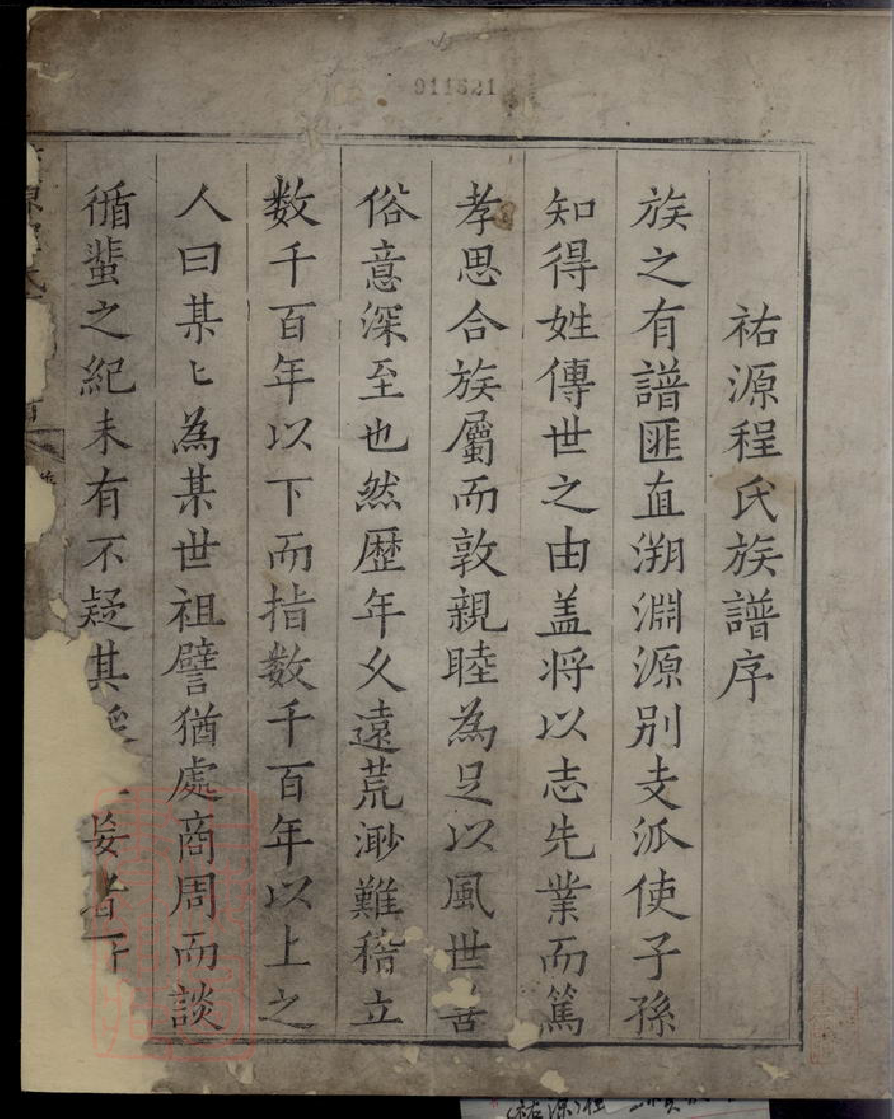 911521
祐源程氏族譜序
族之有譜匪直溯淵源别支派使子孫
知得姓傳世之由盖将以志先業而篤
孝思合族屬而敦親睦為足以風世善
俗意深至也然歴年久遠荒渺難稽立
数千百年以下而指数千百年以上之
人曰某匕為某世祖譬猶處商周而談
循蜚之紀未有不疑其 妄者